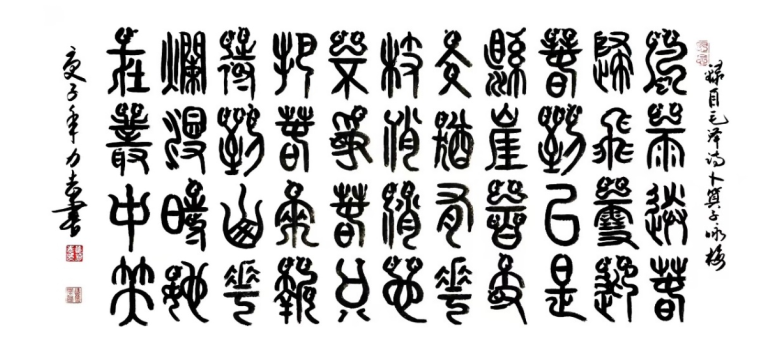 録自毛泽诗卜算子咏梅
風雨送春
歸飛雪迎
春到已是
縣崖百丈
冰猶有花
枝俏俏也
不爭春只
把春來報
待到山花
爛漫時她
在叢中笑
庚子年書